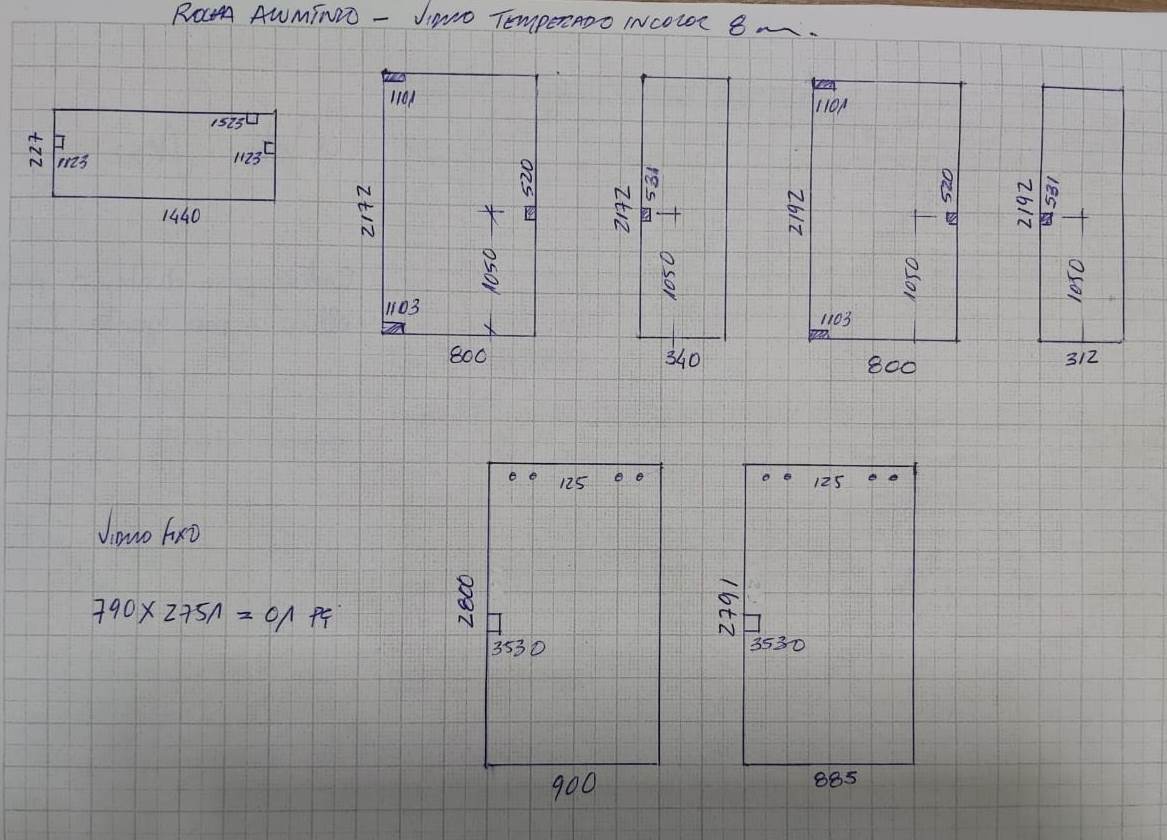 ROCHA ALUMÍNIO - VIDRO TEMPERADO INCOLOR 8 mm.
1523
227
1123
1123
1440
1101
2172
520
1050
1103
800
2172
531
1050
340
1101
2192
520
1050
1103
800
2192
531
1050
312
VIDRO FIXO
790 X 2751 = 01 PÇ
125
2800
3530
900
125
2791
3530
885